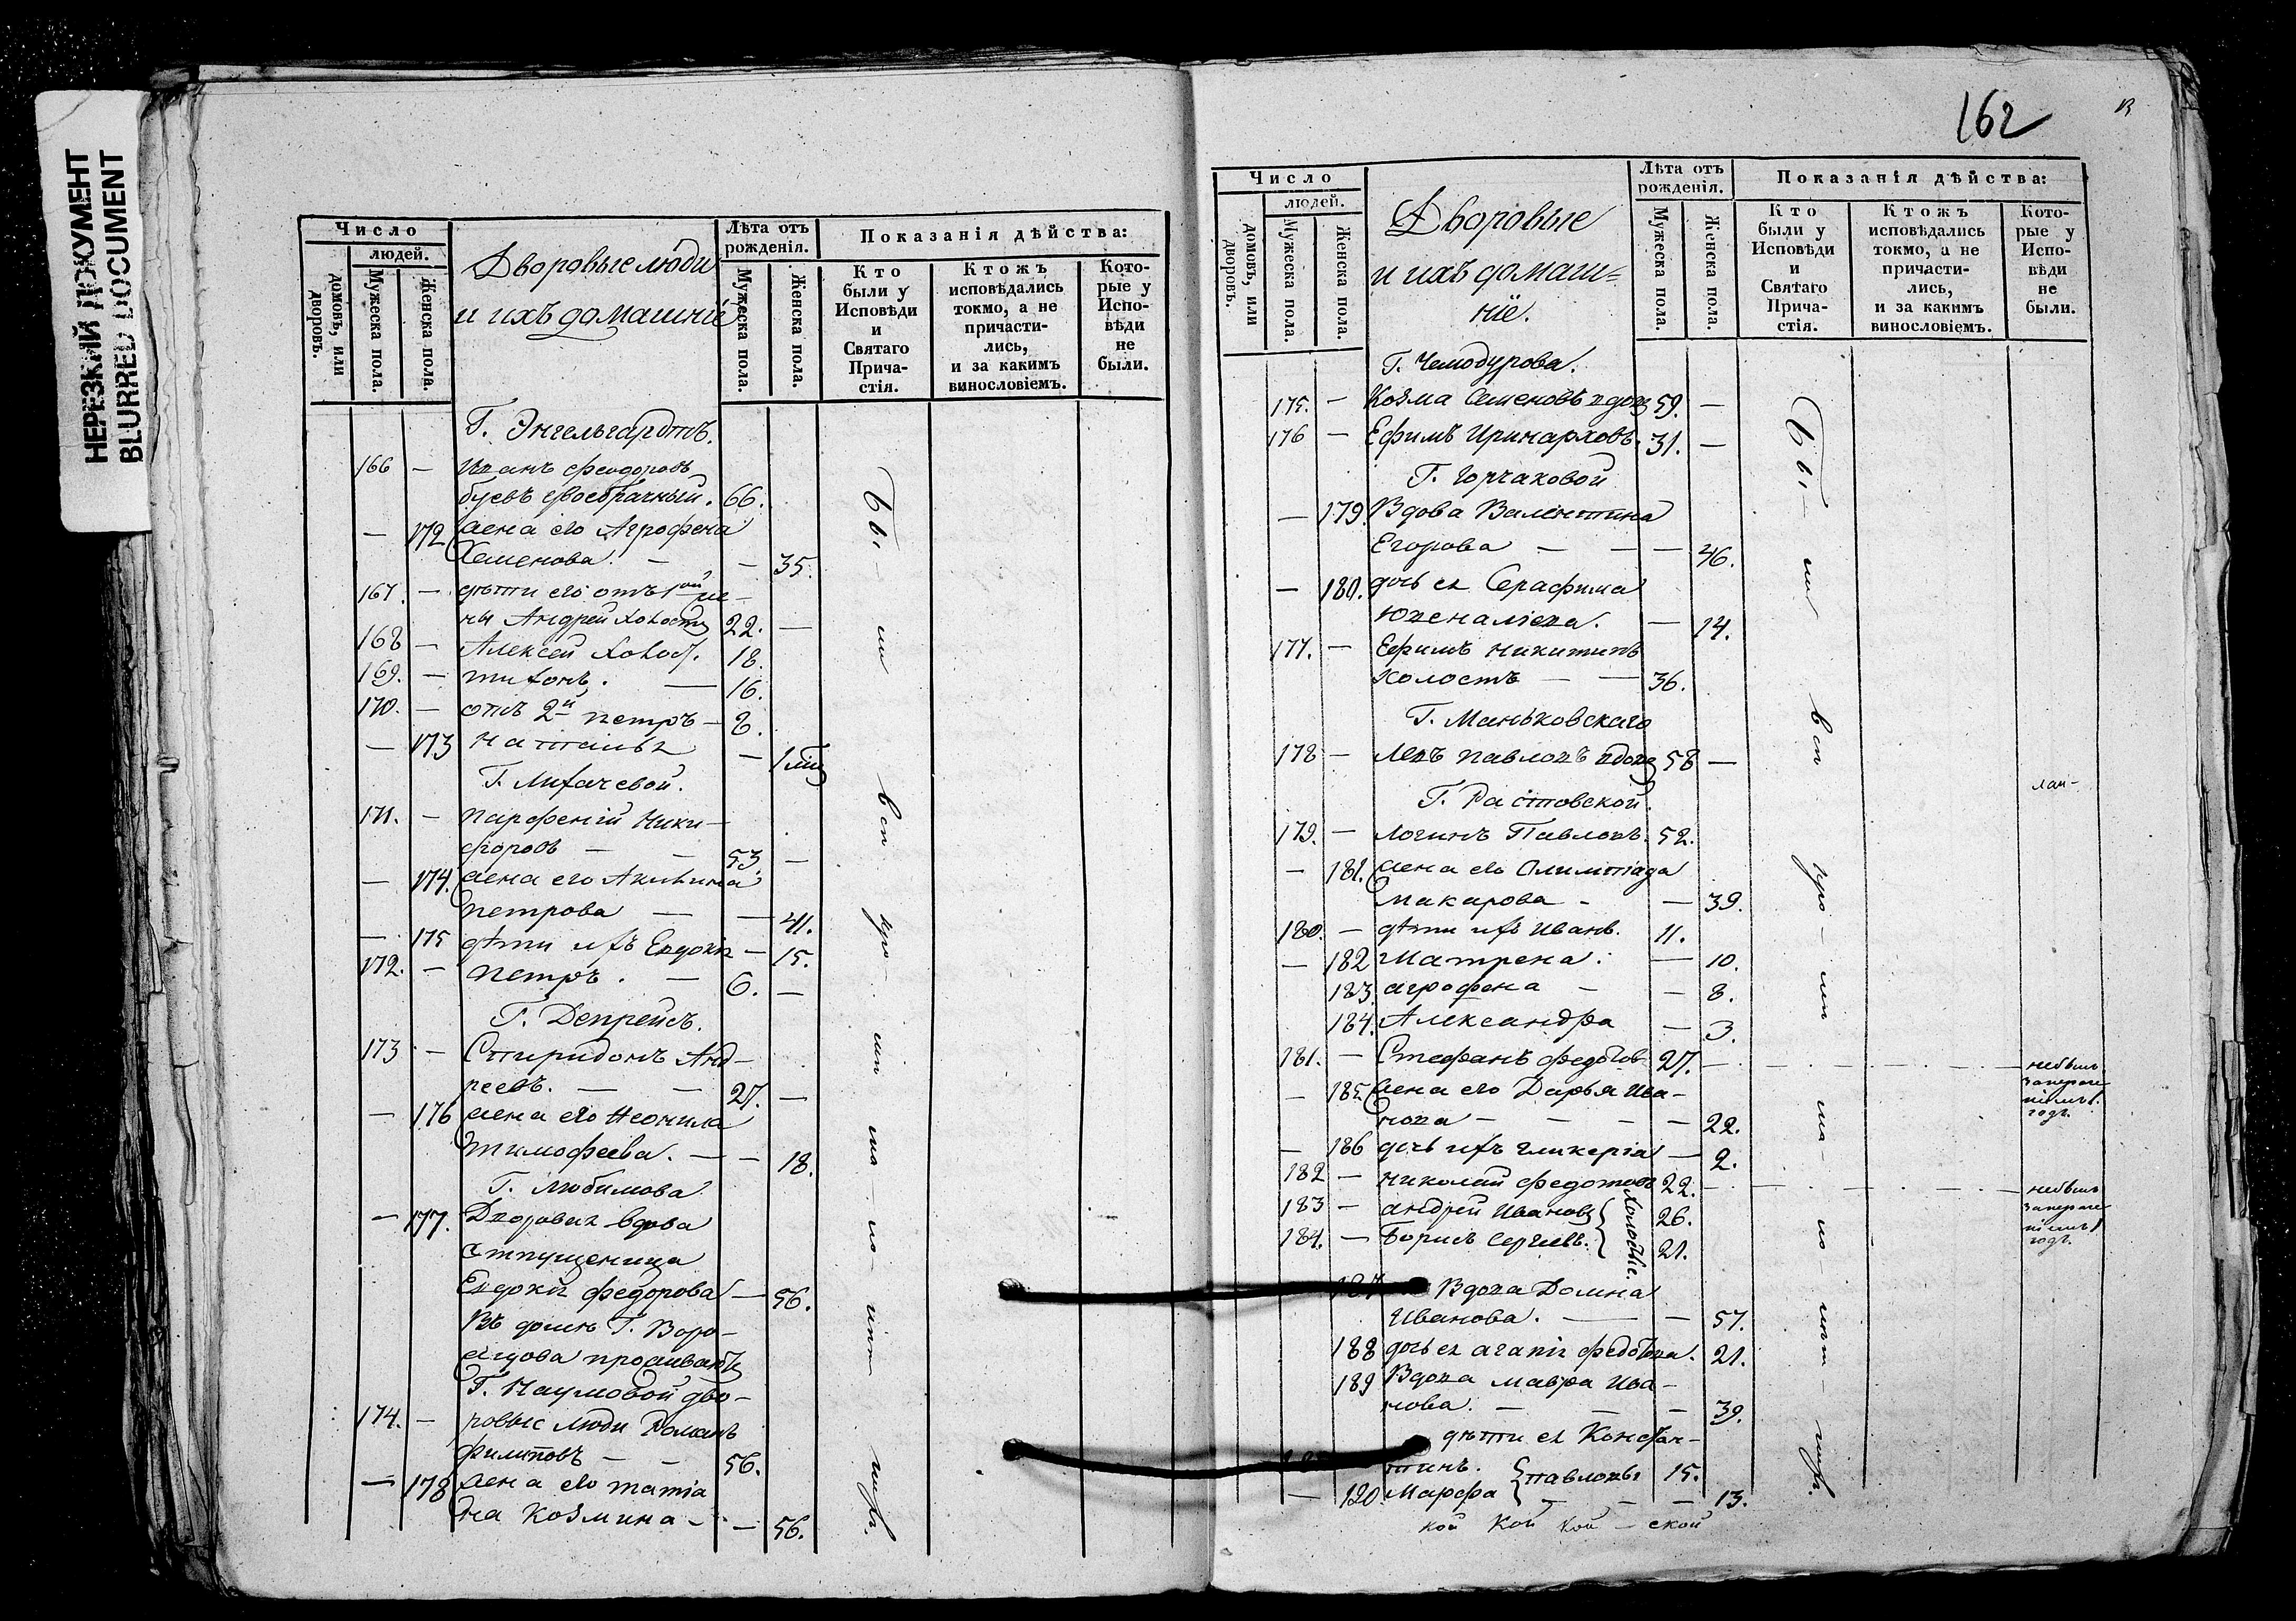 НЕРЕЗКИЙ ДОКУМЕНТ
BLURRED DOCUMENT
Число
людей.
домовъ, или дворовъ.
Мужеска пола.
Женска пола.
Дворовые люди
и ихъ домашніе
Лѣта отъ рожденія.
Мужеска пола.
Женска пола.
Показанія дѣйства:
Кто были у Исповѣди и Святаго Прича-стія.
Ктожъ исповѣдались токмо, а не причасти-лись, и за какимъ винословіемъ.
Кото-рые у Испо-вѣди не были.
Г. Энгельгардтъ.
166 — Иванъ Феодоровъ
66.
— 172 жена его Агрофена
Семенова. — — 35.
167. — дѣти его отъ 1ой же-
ны Андрей холостъ 22. —
168 — Алексей холост. 18.
169. — тихонъ. — 16.
170. — отъ 2й петръ — 8.
— 173 Наталья — 1
Г. Лихачевой.
171. — парфеній Ники-
форовъ — — 53. —
— 174. жена его Акилина
петрова — — 41.
— 175 дѣти ихъ Евдокія — 15.
172. — петръ. — 6. —
Г. Депрейсъ.
173 — Спиридонъ Анд-
реевъ. — — 27. —
— 176 жена его Неонила
тимофеева. — — 18.
Г. Любимова
— 177. Дворовая вдова
Евдокія федорова — 56.
Въ домѣ Г. Воро-
Г. Наумовой дво-
174. — ровые люди Романъ
филиповъ — — 56.
— 178 жена его татіа
на Козмина — — 56.
Бы- ли вси про- ли ма- ло- лѣт
162
Число
людей.
домовъ, или дворовъ.
Мужеска пола
Женска пола.
Дворовые
и ихъ домаш=
ніе.
Лѣта отъ рожденія.
Мужеска пола.
Женска пола.
Показанія дѣйства:
Кто были у Исповѣди и Святаго Прича-стія.
Ктожъ исповѣдались токмо, а не причасти-лись, и за какимъ винословіемъ.
Кото-рые у Испо-вѣди не были.
Г. Чемодурова.
175. — Козма Семеновъ вдовъ 59. —
176 — Ефимъ Иринарховъ. 31. —
Г. Горчаковой
— 179. Вдова Валентина
Егорова — — — 46.
— 180. дочь ея Серафима
Ювеналіева. — 14.
177. — Ефимъ Никитинъ
холостъ — — 36.
Г. Маньковскаго
178 — Левъ павловъ вдовъ 58 —
Г. Растовской.
179. — Логинъ Павловъ. 52.
— 181. жена его Олимпіада
Макарова — — 39.
180. — дѣти ихъ Иванъ. 11.
— 182 Матрена. — 10.
183. агрофена — — 8.
184. Александра — 3.
181. — Стефанъ федотов 27. —
— 185 жена его Дарья Ива-
нова — — — 22.
— 186 дочь ихъ гликерія — 2.
182 — николай федотовъ 22. —
183 — андрей Ивановъ 26.
184. — Борисъ Сергеевъ. 21.
холостые.
187 Вдова Домна
Иванова. — — 57.
188 дочь ея агапія федотова. 21.
189 Вдова Мавра Ива-
нова. — — — 39.
дѣти ея Констан-
тинъ. павловы 15.
— 190 Марфа — — — 13.
кой кой кой — ской
небылъ
годъ.
небылъ
годъ.